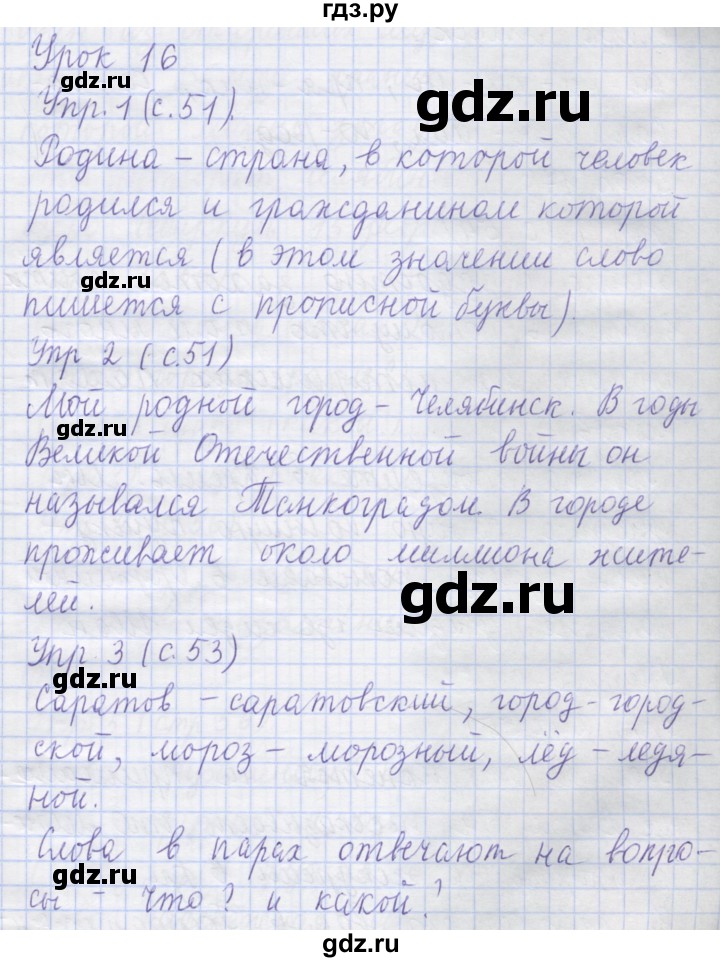 гдз.ру
Урок 16
gdz.ru
gdz.ru
Упр. 1 (с. 51).
Родина – страна, в которой человек
родился и гражданином которой
является (в этом значении слово
gdz.ru
пишется с прописной буквы).
Упр 2 (с. 51)
Мой родной город – Челябинск. В годы
gdz.ru
Великой Отечественной войны он
назывался Танкоградом. В городе
проживает около миллиона жите-
gdz.ru
лей.
Упр 3 (с. 53)
gdz.ru
Саратов – саратовский, город – город-
ской, мороз – морозный, лёд – ледя-
ной.
Слова в парах отвечают на вопро-
gdz.ru
сы – что? и какой?
gdz.ru